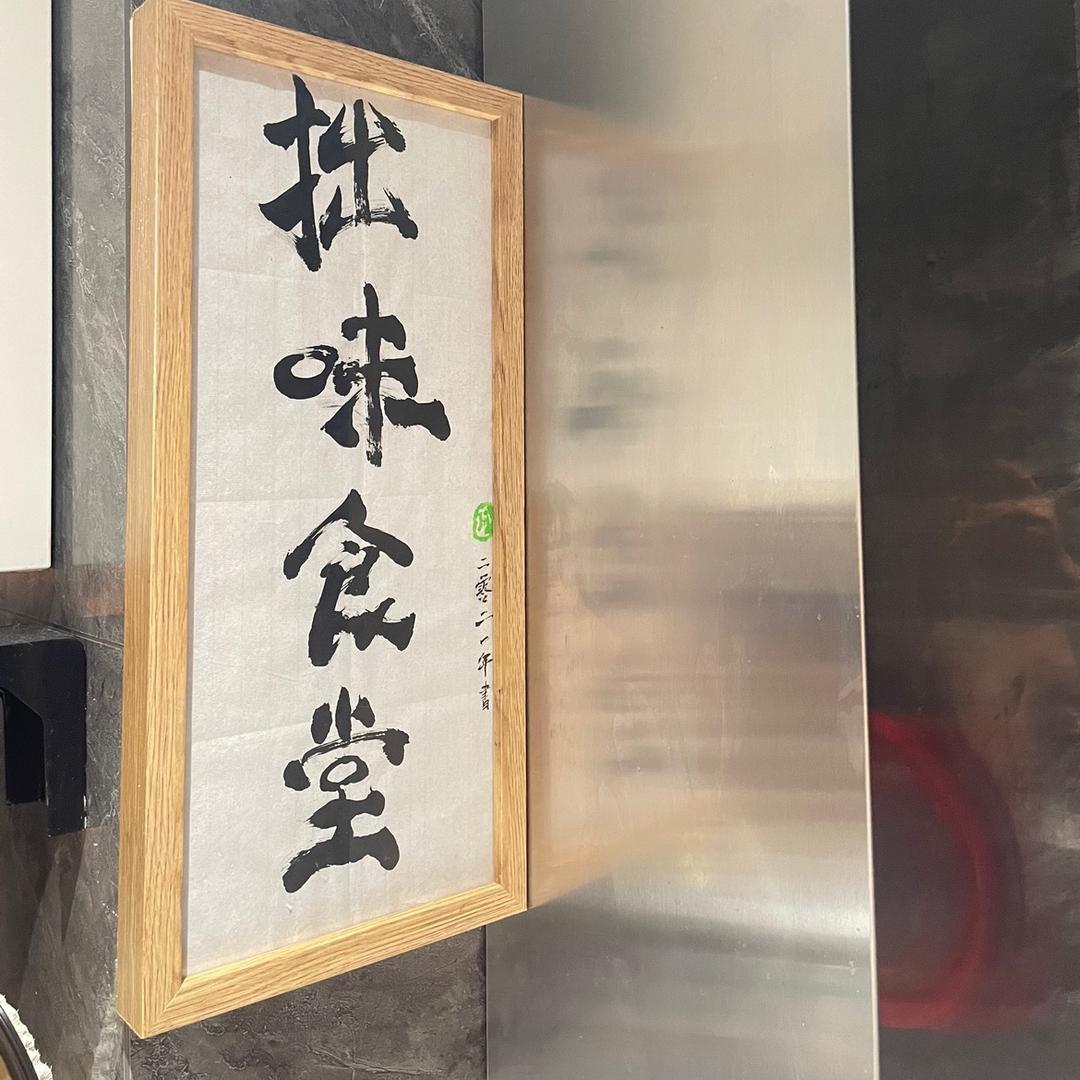 拙味食堂
二零二一年書